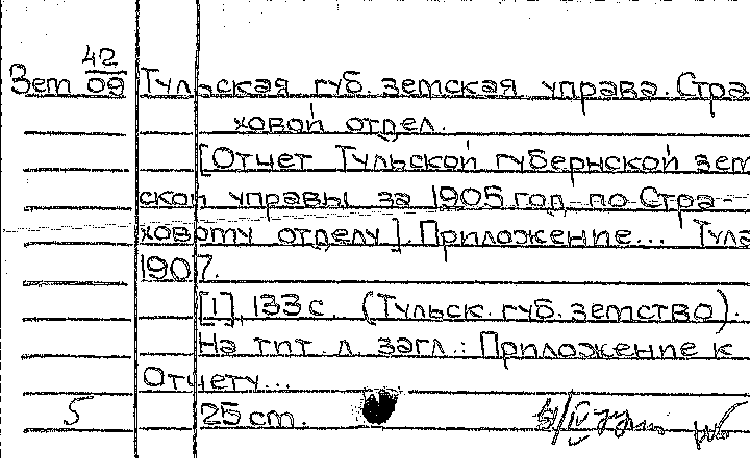 Зет 42/09 Тульская губ. земская управа. Стра
ховой отдел.
[Отчет Тульской губернской зем
ской управы за 1905 год по Стра-
ховому отделу]. Приложение... Тула
1907.
[1], 133 с. (Тульск. губ. земство).
На тит. л. загл.: Приложение к
Отчету...
5 25 cm.